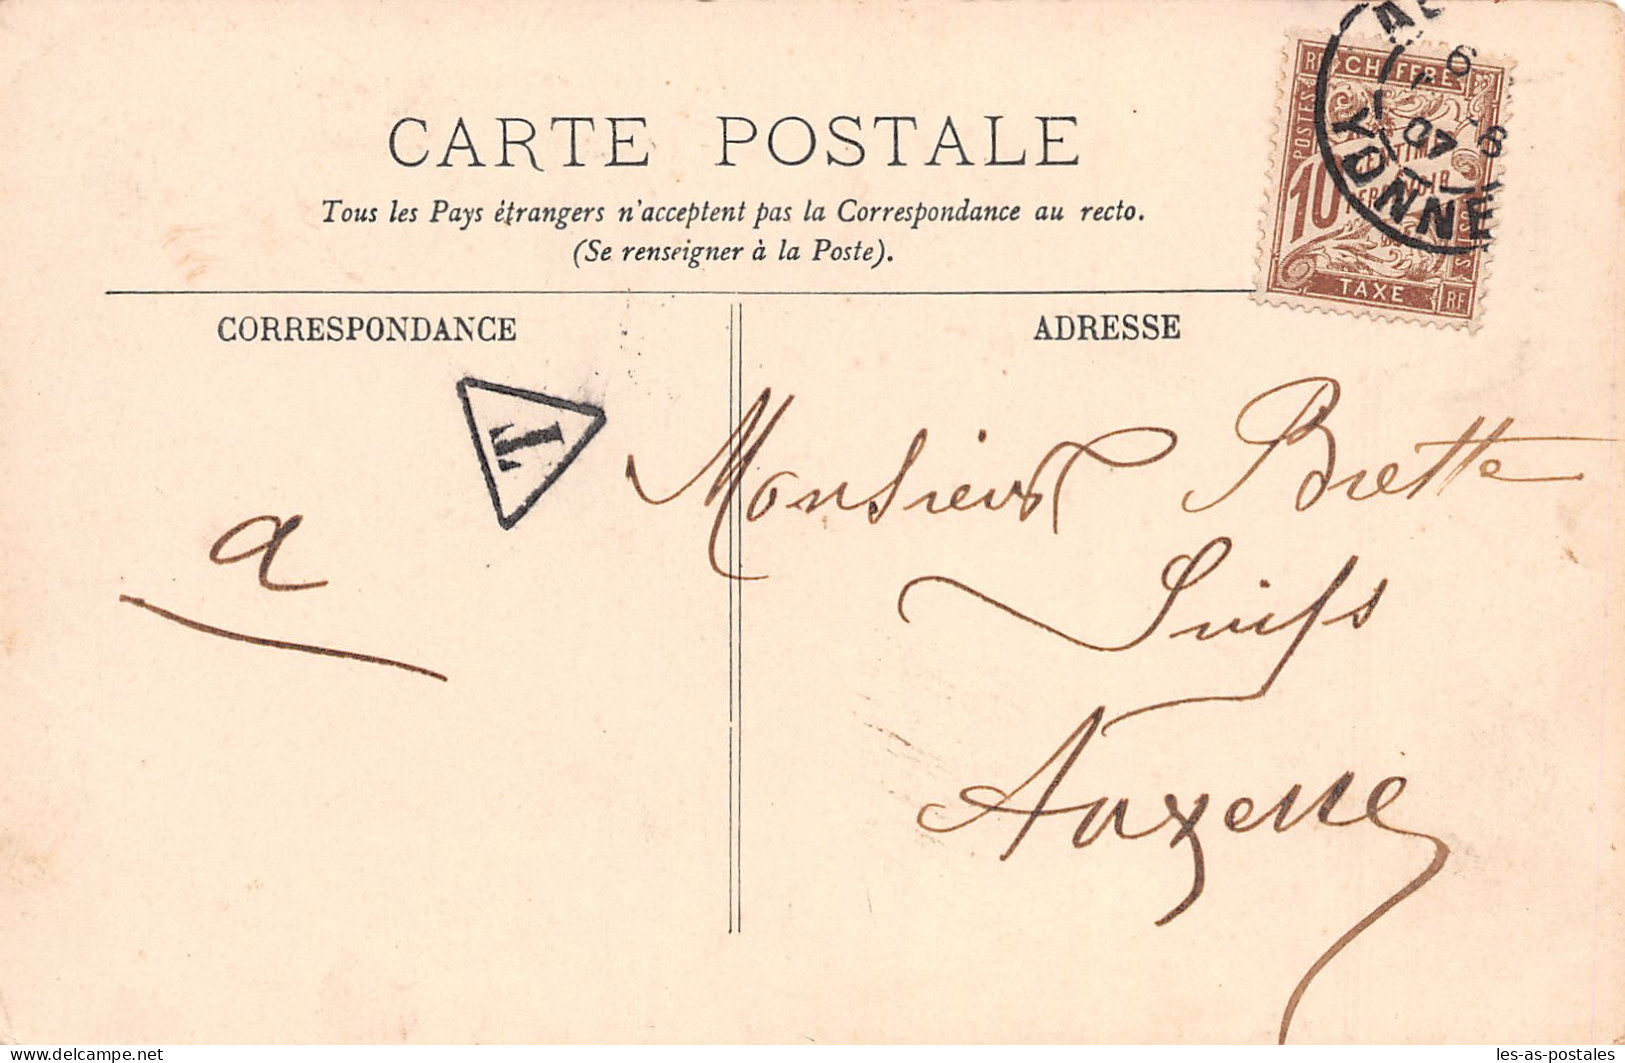 CARTE POSTALE
Tous les Pays étrangers n'acceptent pas la Correspondance au recto.
(Se renseigner à la Poste).
RF CHIFFRE
POSTES
10
TAXE RF
6
07
YONNE
CORRESPONDANCE
ADRESSE
T
a
Monsieur Brette
Suifs
Auxerre
delcampe.net
les-as-postales